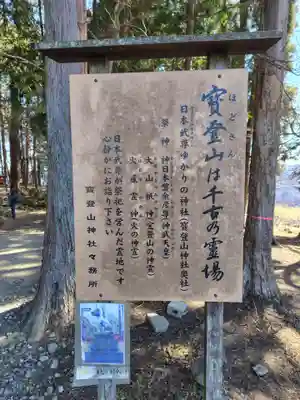 ほどさん
寶登山は千古の霊場
日本武尊ゆかりの神社（寳登山神社奥社）
祭神 神日本磐余彦尊（神武天皇）
大山祇神（宝登山の神霊）
火産霊神（火の神霊）
日本武尊が祭祀を営んだ霊地です
心静かにお詣り下さい
寳登山神社々務所